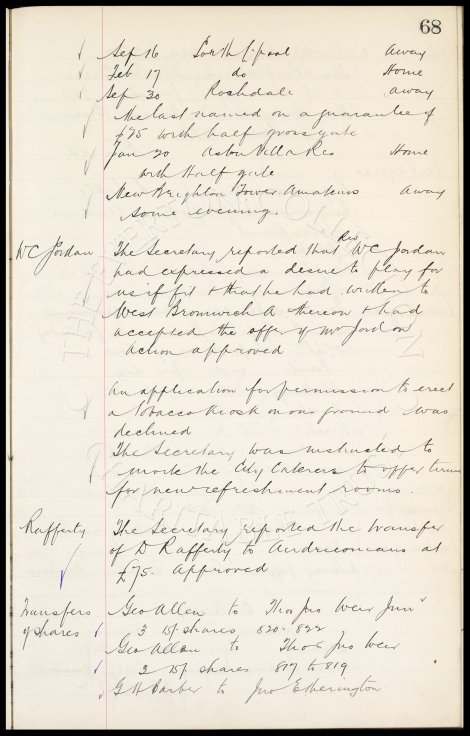 68
Sep 16 South L'pool Away
Feb 17 do Home
Sep 30 Roshdale away
the last named on a guarantee of
£25 with half gross gate
Jan 20 Aston Villa Res Home
with Half gate
New Brighton Tower Amateurs Away
some evening.
WC Jordan The Secretary reported that Rev WC Jordan
had expressed a desire to play for
us if fit & that he had written to
West Bromwich A thereon & had
accepted the offer of Mr Jordon
Action approved
An application for permission to erect
a Tobacco Kiosk on our ground was
declined
The Secretary was instructed to
invite the City Caterers to offer terms
for new refreshment rooms.
Rafferty The Secretary reported the transfer
of D Rafferty to Airdrieonians at
£75. Approved
Transfers Geo Allen to Thos Jno Weir Junr
of shares 3 shares 820-822
Geo Allan to Thos Jno Weir
3 shares 817 to 819
G H Barber to Jno Etherington